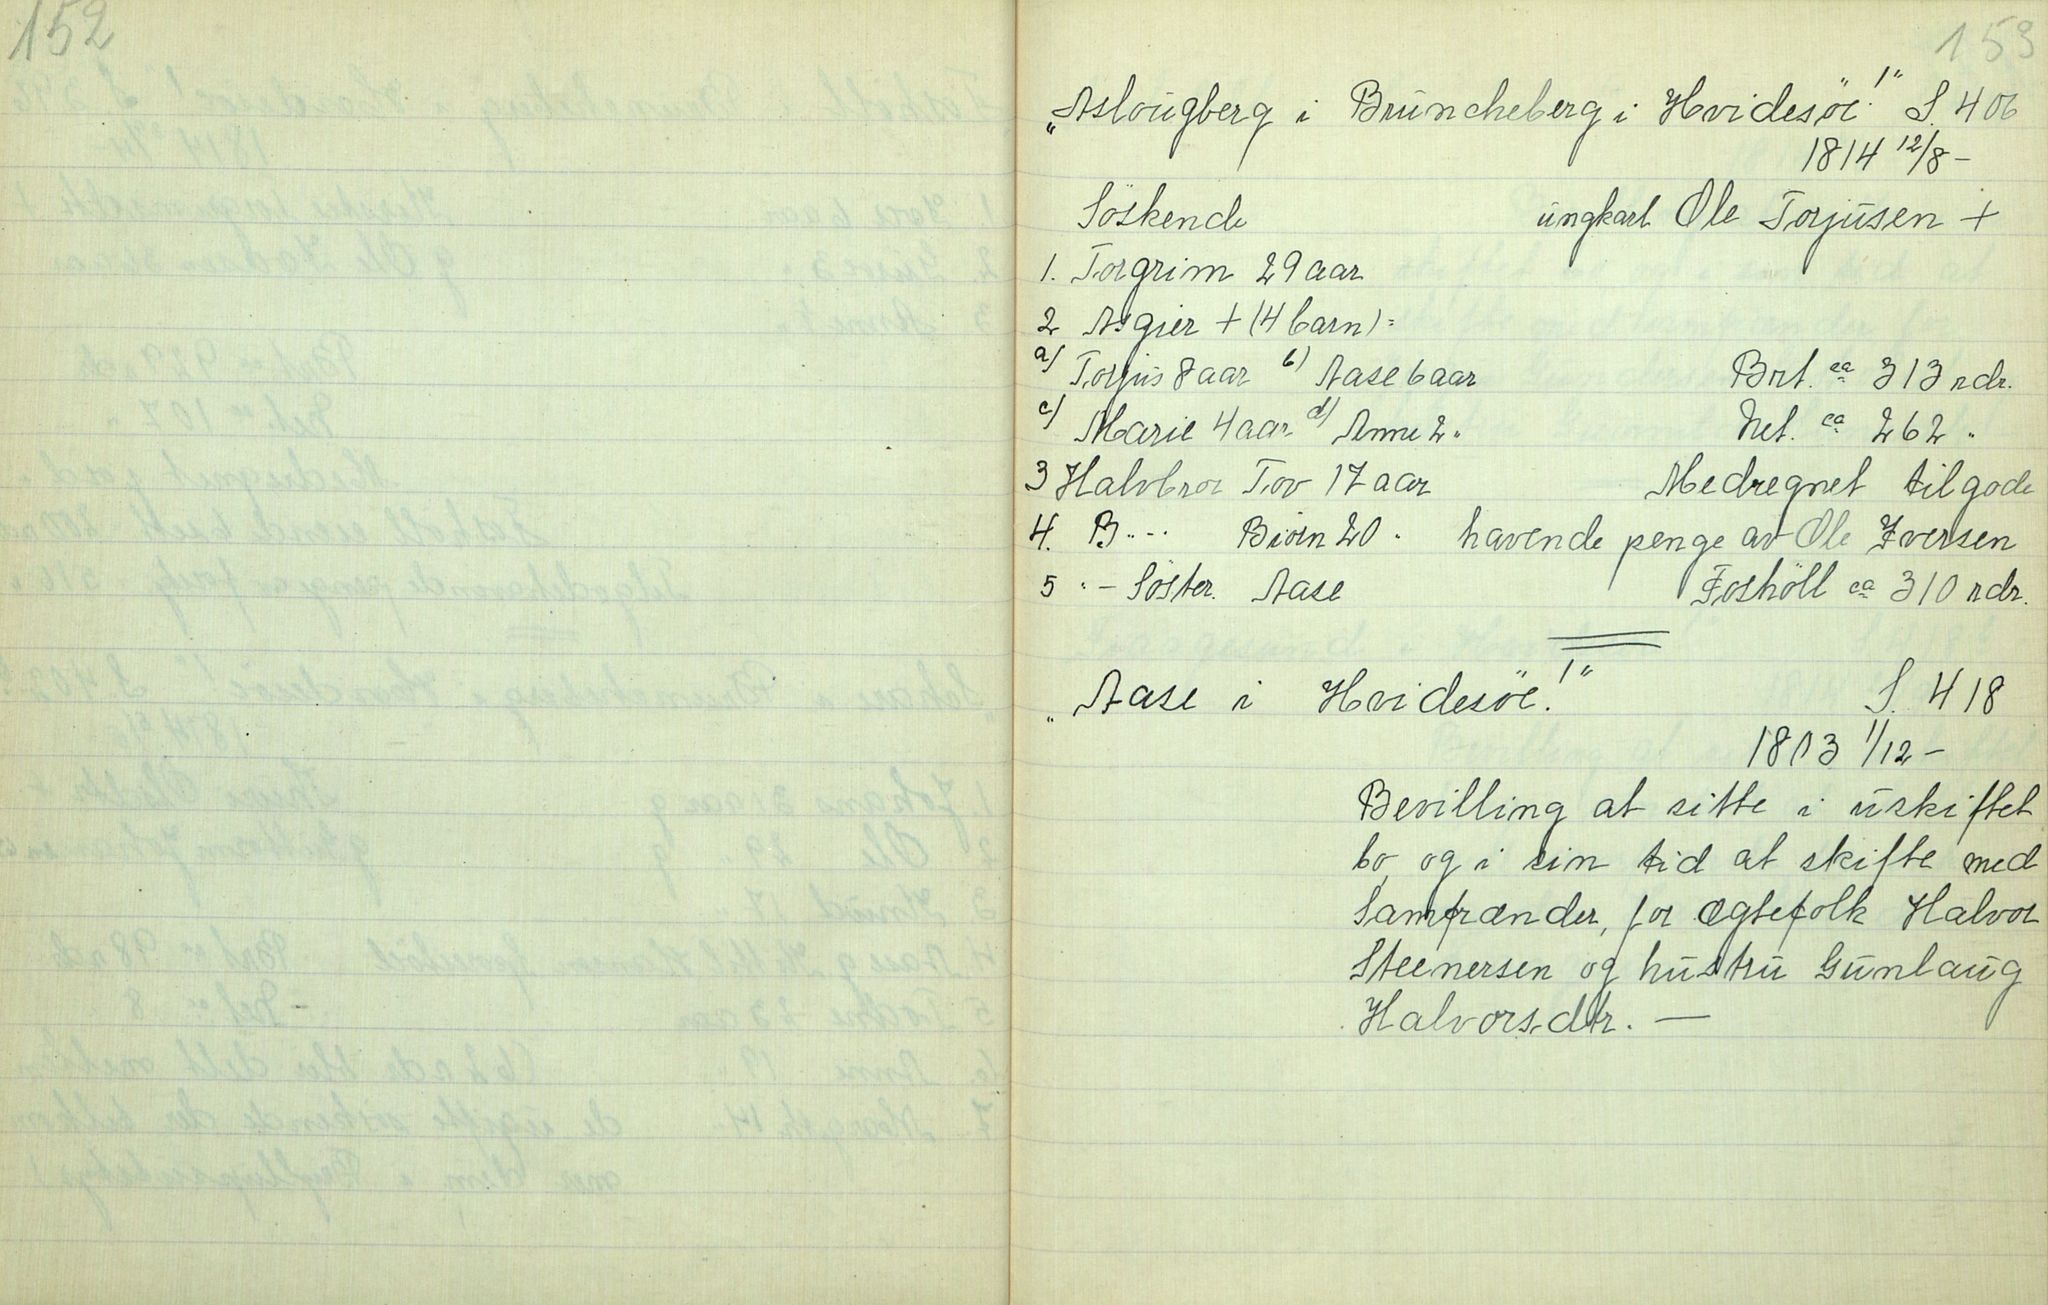 152
153
„Aslougberg i Bruncheberg i Hvidesöe!" S. 406
1814 12/8 –
Söskende ungkarl Ole Torjusen +
1. Torgrim 29 aar
2 Asgier + (4 barn):
a) Torjus 8 aar b) Aase 6 aar Brt. ca 313 rdr.
c) Marie 4 aar d) Anne 2 „ Net. ca 262 „
3 Halvbror Tov 17 aar Medregnet tilgode
4. B „ – Biörn 20 „ havende penge av Ole Iversen
5 „ – Söster. Aase Foshöll ca 310 rdr.
„Aase i Hvidesöe!" S. 418
1803 1/12 –
Bevilling at sitte i uskiftet
bo, og i sin tid at skifte med
Samfrænder, for ægtefolk Halvor
Steenersen og hustru Gunlaug
Halvorsdtr. —